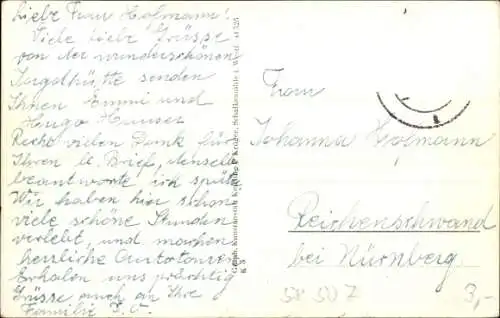 Liebe Frau Hofmann!
Viele liebe Grüsse
von der wunderschönen
Jagdhütte senden
Ihnen Emmi und
Hugo
Recht vielen Dank für
Ihren lb. Brief, denselb
beantworte ich spät
Wir haben hier schon
viele schöne Stunden
verlebt, und machen
herrliche Autotouren
Erholen uns prächtig
Grüsse auch an Ihre
Familie D.O.
Graph. Kunstanstalt Kettling & Krüger, Schalksmühle i. Westf.
K 5
Frau
Johanna Hofmann
Reichenschwand
bei Nürnberg
58 50Z
3,-